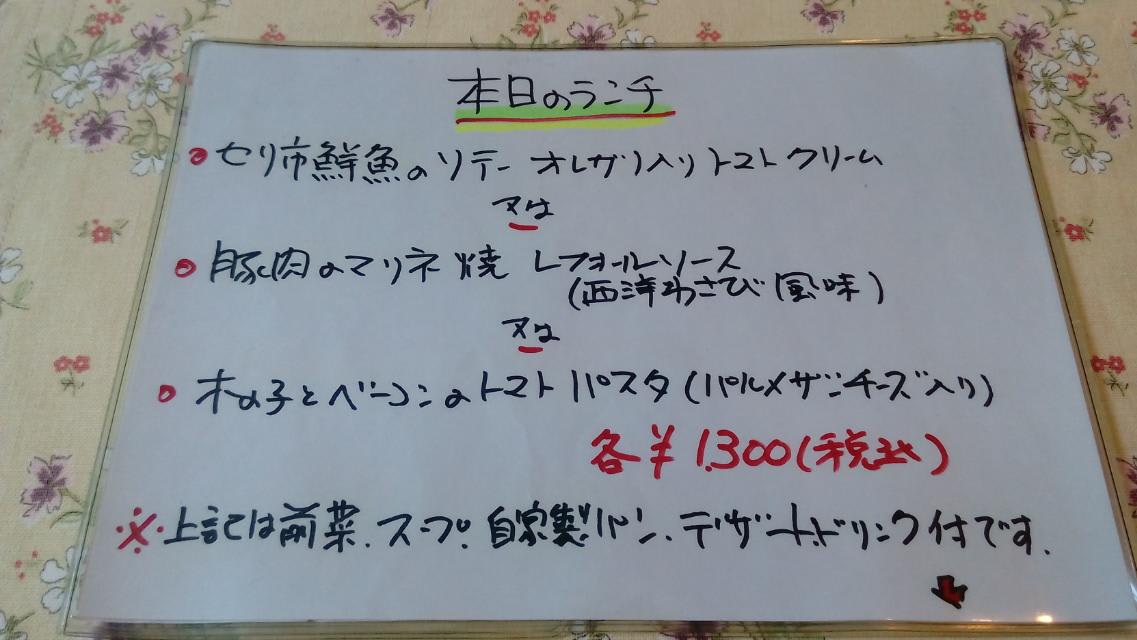 本日のランチ
セリ市鮮魚のソテー オレガノ入りトマトクリーム
又は
豚肉のマリネ焼 レフォールソース
(西洋わさび風味)
又は
木の子とベーコンのトマトパスタ(パルメザンチーズ入り)
各¥1.300(税込)
※上記は前菜.スープ.自家製パン.デザート.ドリンク付です.